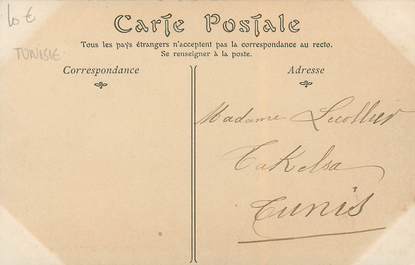 10 €
TUNISIE
Carte Postale
Tous les pays étrangers n'acceptent pas la correspondance au recto.
Se renseigner à la poste.
Correspondance
Adresse
Madame Lecollier
Takelsa
Tunis